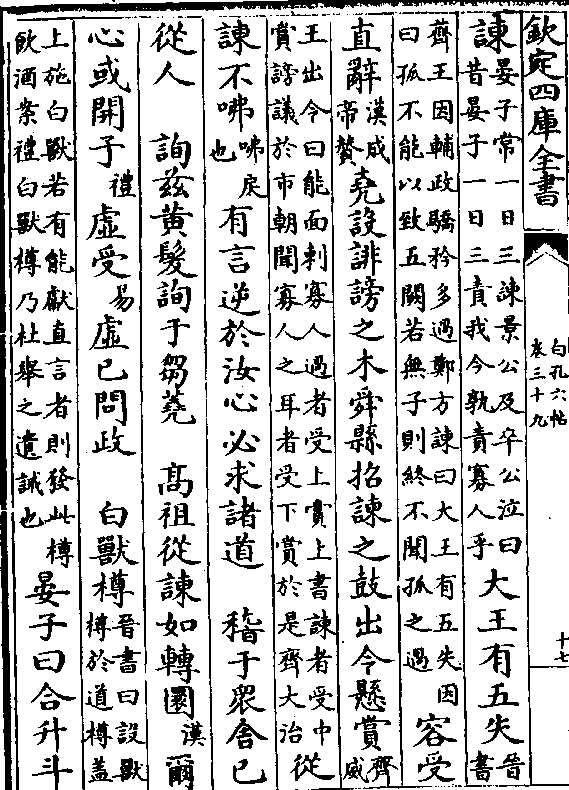 欽定四庫全書
白孔六帖
卷三十九
十七
諫晏子常一日三諫景公及卒公泣曰昔晏子一日三責我今孰責寡人乎大王有五失晉書
齊王因輔政驕矜多過鄭方諫曰大王有五失因曰孤不能以致五闕若無子則終不聞孤之過容受
直辭漢成帝贊堯設誹謗之木舜縣招諫之鼓出令懸賞齊威
王出令曰能面刺寡人過者受上賞上書諫者受中賞謗議於市朝聞寡人之耳者受下賞於是齊大治從
諫不咈咈戾也有言逆於汝心必求諸道 稽于衆舍已
從人 詢茲黃髮詢于芻蕘 高祖從諫如轉圜漢爾
心或開子禮虛受易虛已問政 白獸樽晉書曰設獸樽於道樽蓋
上施白獸若有能獻直言者則發此樽飲酒案禮白獸樽乃杜舉之遺誡也晏子曰合升斗